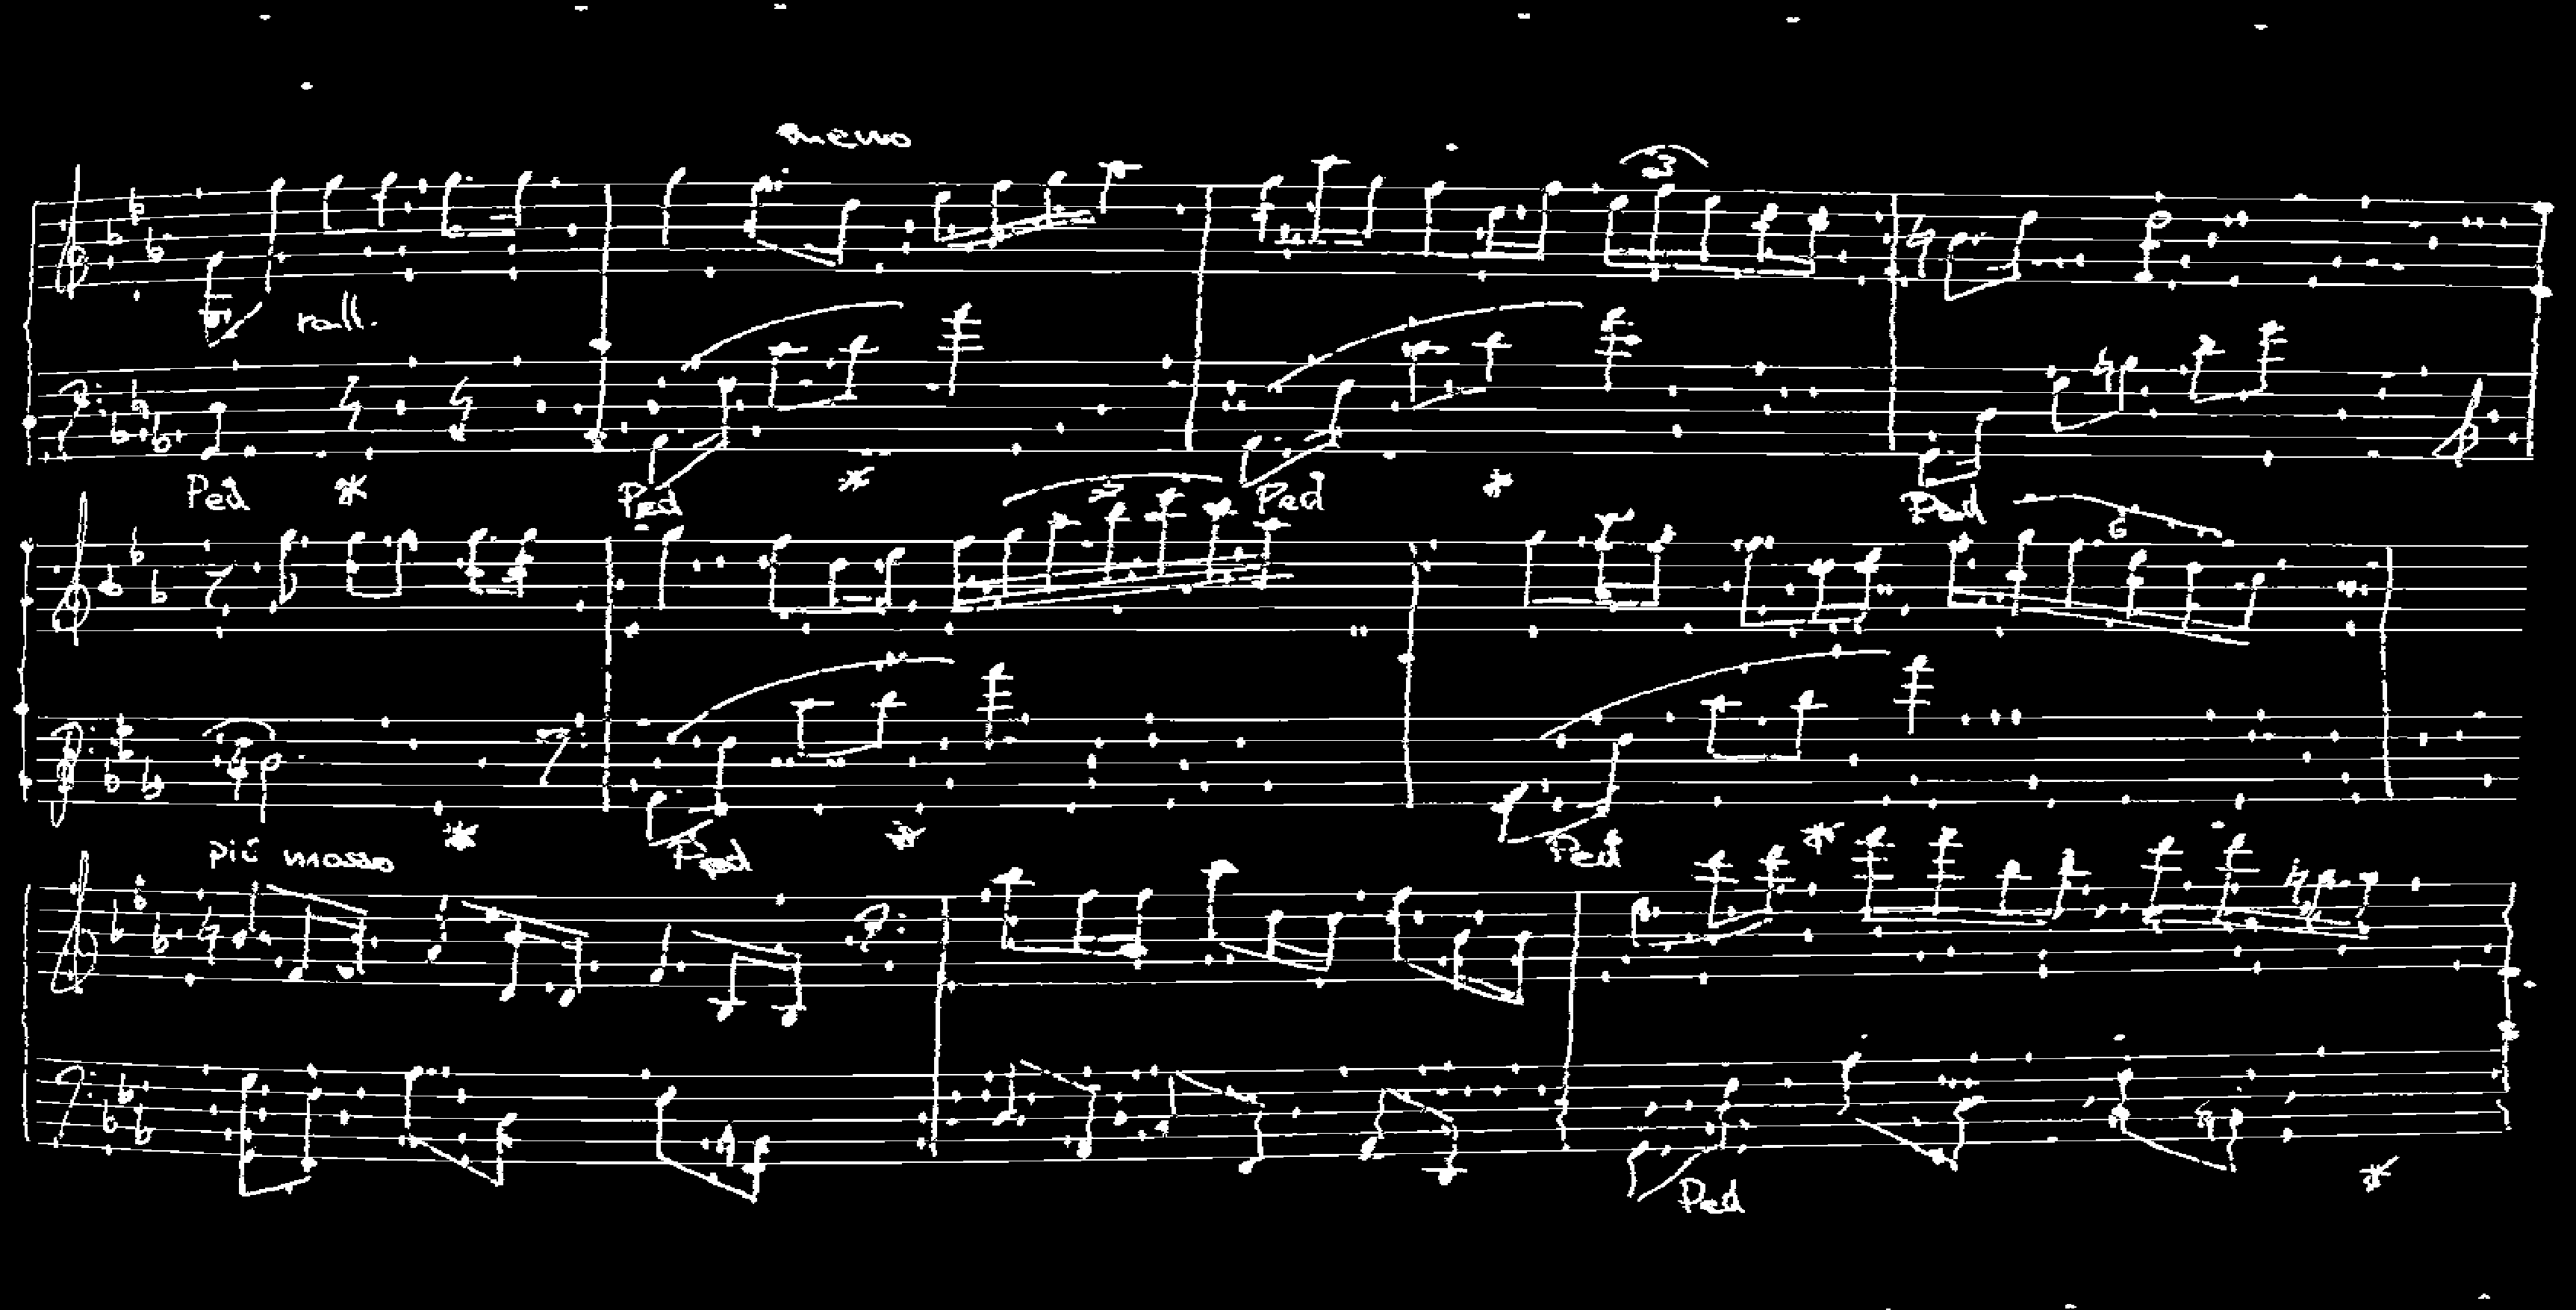 meno
3
rall.
Ped * Ped * Ped * Ped
7
6
* Ped * Ped *
più mosso
Ped *